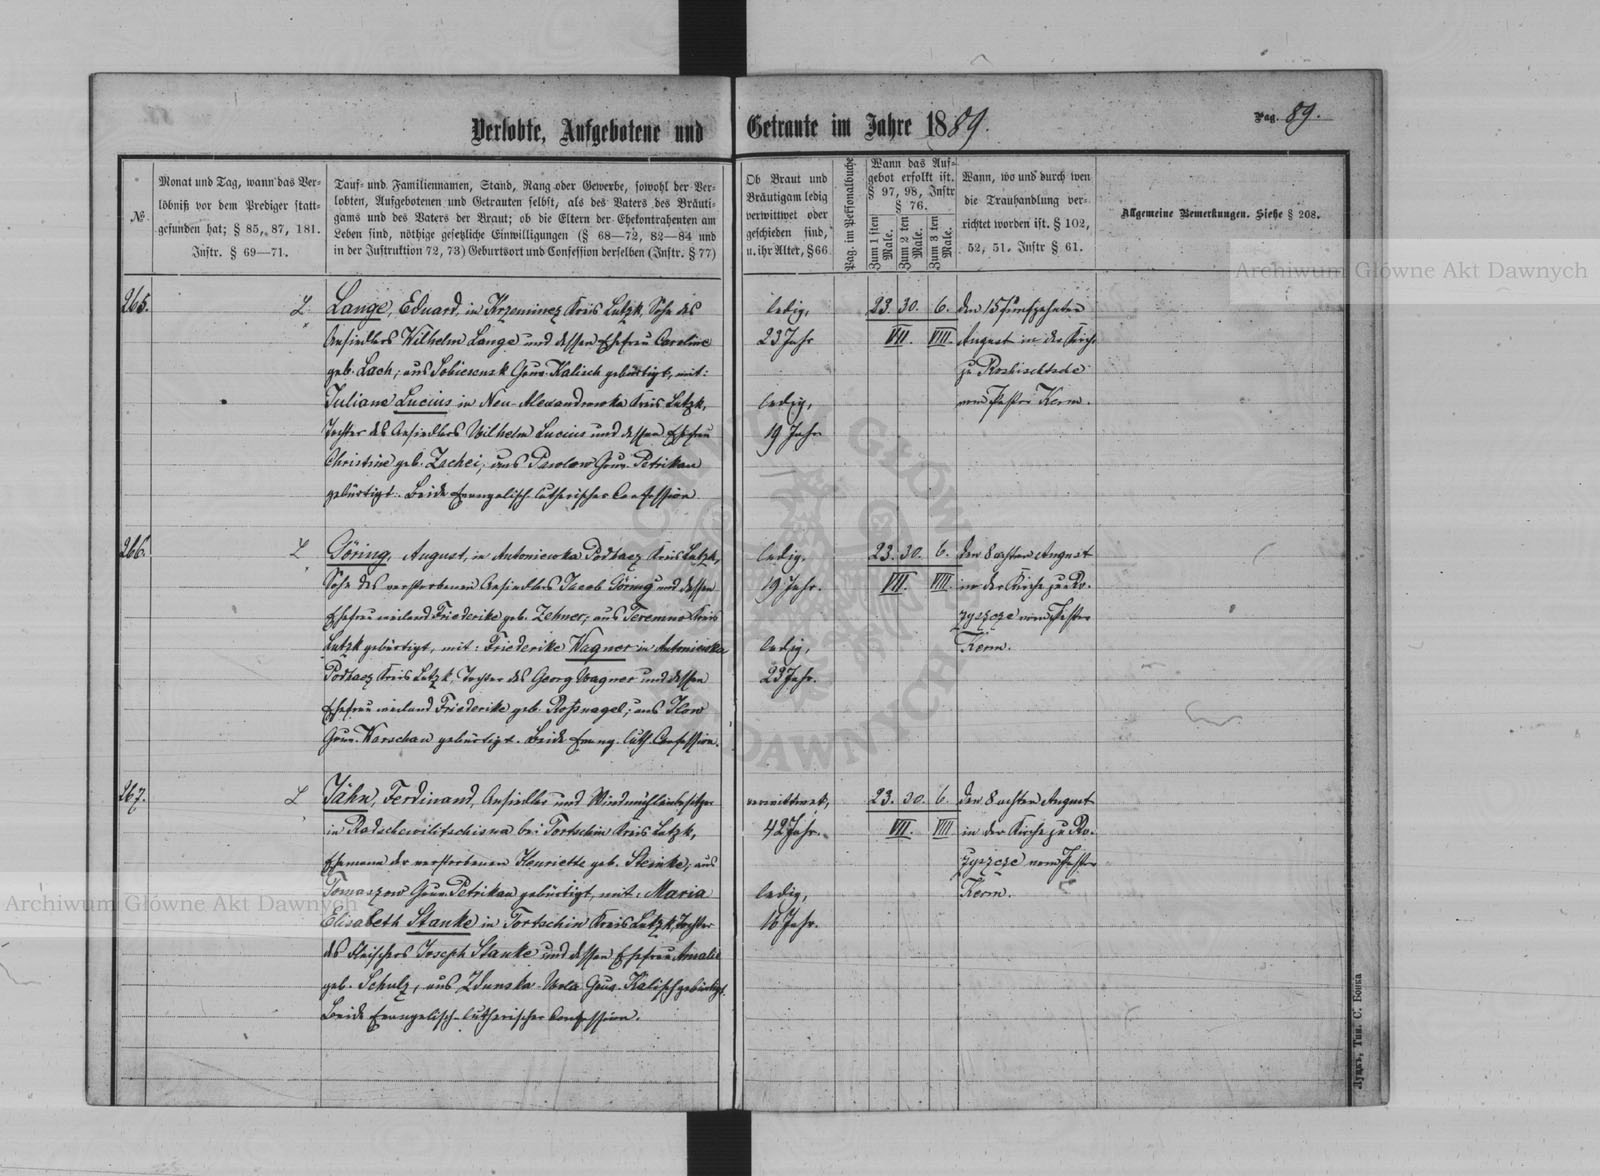 Verlobte, Aufgebotene und Getraute im Jahre 1889.
Pag. 89.
№
Monat und Tag, wann das Ver-
löbniß vor dem Prediger statt-
gefunden hat; § 85, 87, 181.
Instr. § 69—71.
Tauf- und Familiennamen, Stand, Rang oder Gewerbe, sowohl der Ver-
lobten, Aufgebotenen und Getrauten selbst, als des Vaters des Bräuti-
gams und des Vaters der Braut; ob die Eltern der Ehekontrahenten am
Leben sind, nöthige gesetzliche Einwilligungen (§ 68—72, 82—84 und
in der Justruktion 72, 73) Geburtsort und Confession derselben (Instr. § 77)
Ob Braut und
Bräutigam ledig
verwittwet oder
geschieden sind,
u. ihr Alter, § 66
Pag. im Personalbuche
Wann das Auf-
gebot erfolkt ist.
§ 97, 98, Instr
§ 76.
Zum 1 sten Male.
Zum 2 ten Male.
Zum 3 ten Male.
Wann, wo und durch wen
die Trauhandlung ver-
richtet worden ist. § 102,
52, 51. Instr § 61.
Allgemeine Bemerkungen. Siehe § 208.
265.
L
Lange, Eduard, in Krzeminez Kreis Lutzk, Sohn des
Ansiedlers Wilhelm Lange und dessen Ehefrau Caroline
geb. Lach; aus Sobiesensk Gouv. Kalisch gebürtigt, mit:
Juliane Lucius in Neu-Alexandrowka Kreis Lutzk,
Tochter des Ansiedlers Wilhelm Lucius und dessen Ehefrau
Christine geb. Zachei; aus Pawlow Gouv. Petrikau
gebürtigt. Beide Evangelisch-Lutherischer Confession
ledig,
23 Jahr
ledig,
19 Jahr
23. 30. 6.
VII. VIII.
den 15 fünfzehnten
August in der Kirche
zu Roshischtsche
vom Pastor Kerm.
266.
L
Göring, August, in Antoniewka Podhaez Kreis Lutzk,
Sohn des verstorbenen Ansiedlers Jacob Göring und dessen
Ehefrau weiland Friederike geb. Zehner; aus Teremno Kreis
Lutzk gebürtigt, mit: Friederike Wagner in Antoniewka
Podhaez Kreis Lutzk, Tochter des Georg Wagner und dessen
Ehefrau weiland Friederike geb. Roßnagel; aus Ilow
Gouv. Warschau gebürtigt. Beide Evang. Luth. Confession.
ledig,
19 Jahr.
ledig,
23 Jahr.
23. 30. 6.
VII. VIII.
den 8 achten August
in der Kirche zu Ro-
zyszcze vom Pastor
Kerm.
267.
L
Jähn, Ferdinand, Ansiedler und Windmühlenbesitzer
in Radschewilitschisna bei Tortschin Kreis Lutzk,
Ehemann der verstorbenen Henriette geb. Steinke; aus
Tomaszow Gouv. Petrikau gebürtigt, mit: Maria
Elisabeth Stanke in Tortschin Kreis Lutzk, Tochter
des Fleischers Joseph Stanke und dessen Ehefrau Amalie
geb. Schulz, aus Zdunska-Wola Gouv. Kalisch gebürtigt.
Beide Evangelisch-Lutherischer Confession.
verwittwet,
42 Jahr.
ledig,
16 Jahr.
23. 30. 6.
VII. VIII
den 8 achten August
in der Kirche zu Ro-
zyszcze vom Pastor
Kerm.
Луцкъ, Тип. С. Бонка
Archiwum Główne Akt Dawnych
Archiwum Główne Akt Dawnych
ARCHIWUM GŁÓWNE AKT DAWNYCH